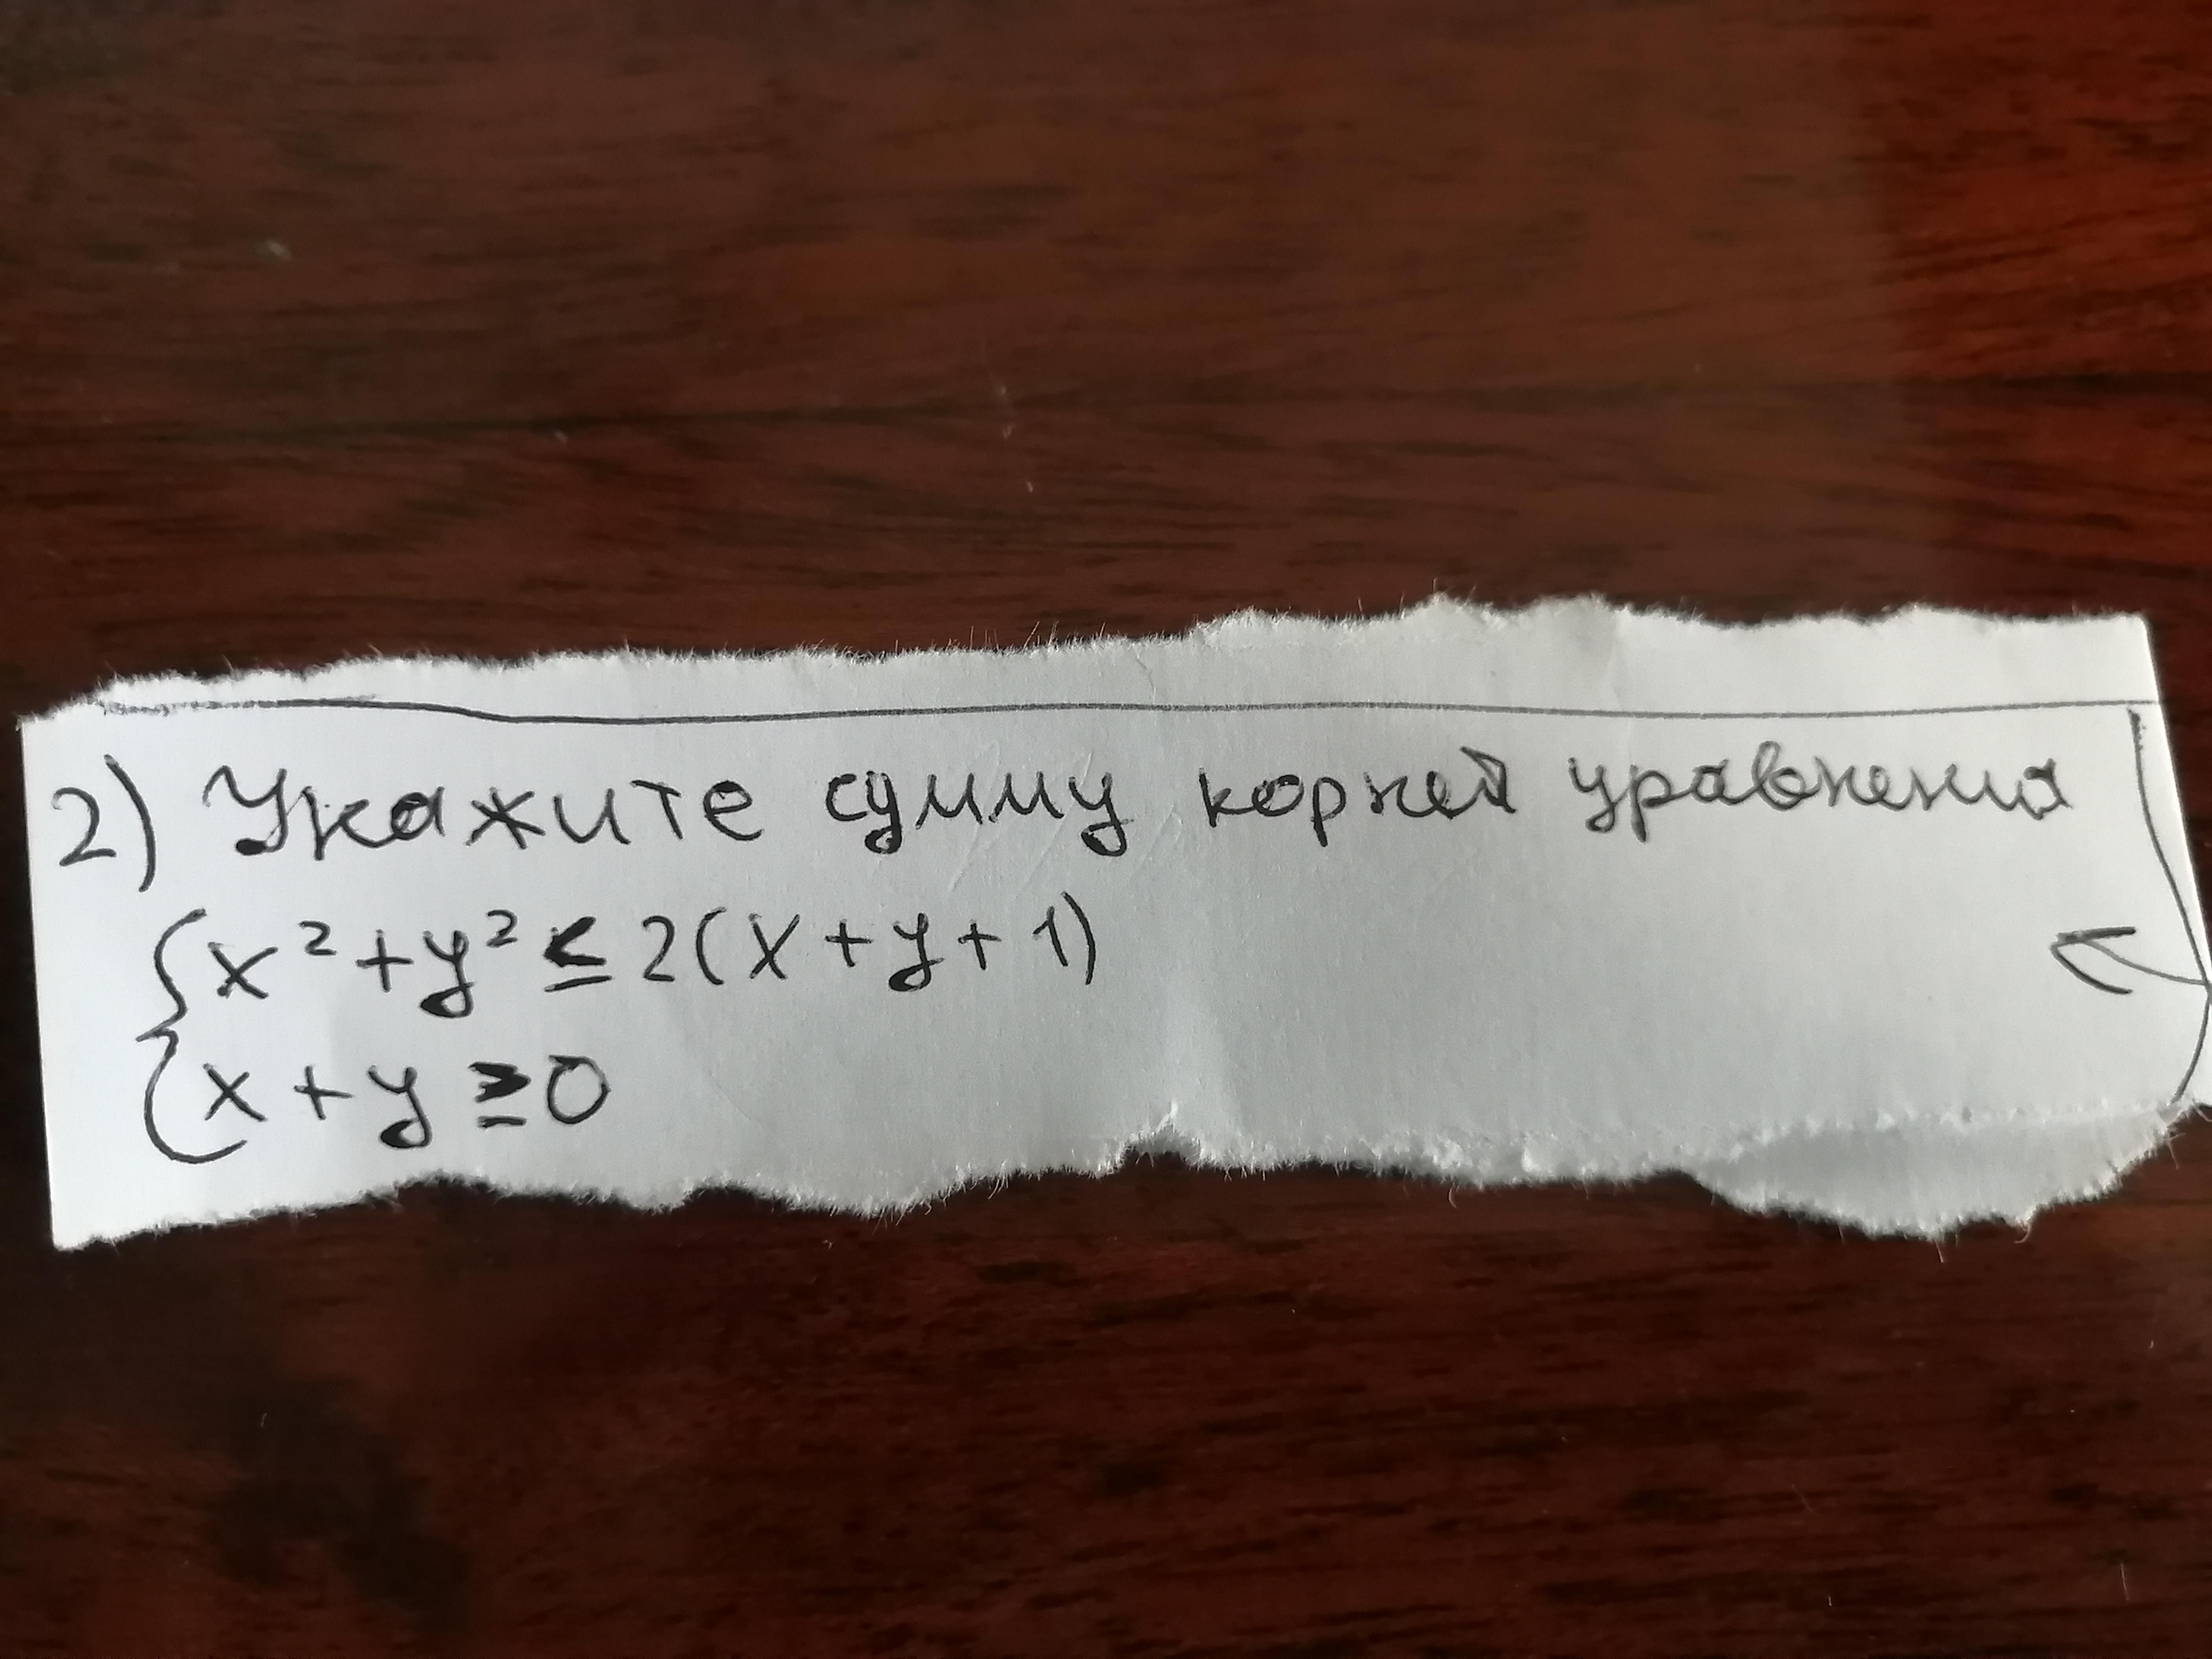 2) Укажите сумму корней уравнения
{x² + y² ≤ 2(x + y + 1)
{x + y ≥ 0